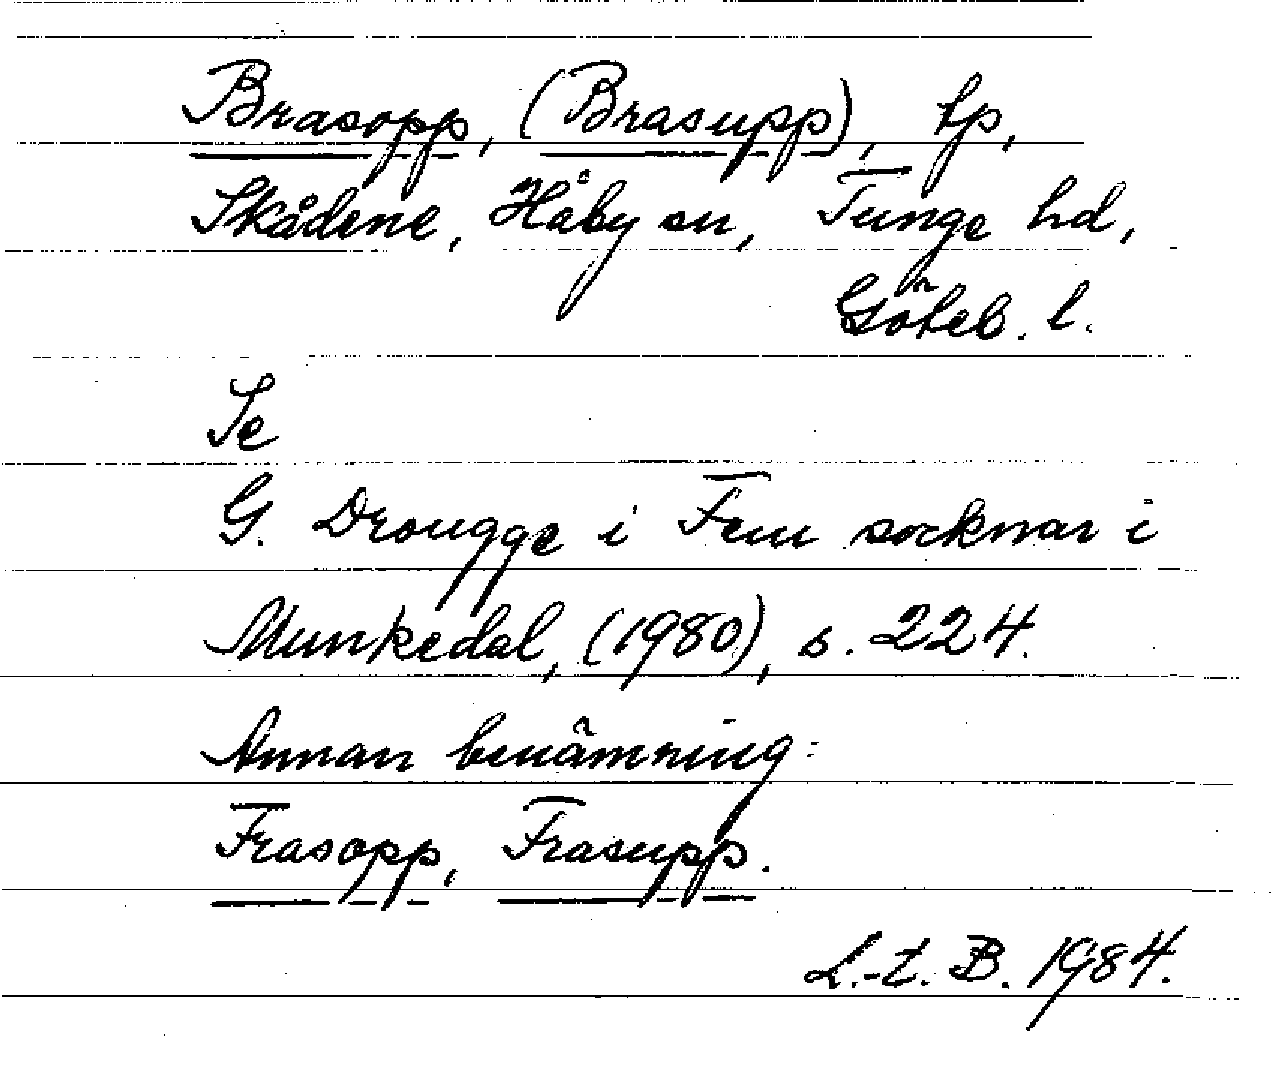 Brasopp, (Brasupp), tp,
Skådene, Håby sn, Tunge hd,
Göteb. l.
Se
G. Drougge i Fem socknar i
Munkedal, (1980), s. 224.
Annan benämning:
Frasopp, Frasupp.
L.-t. B. 1984.